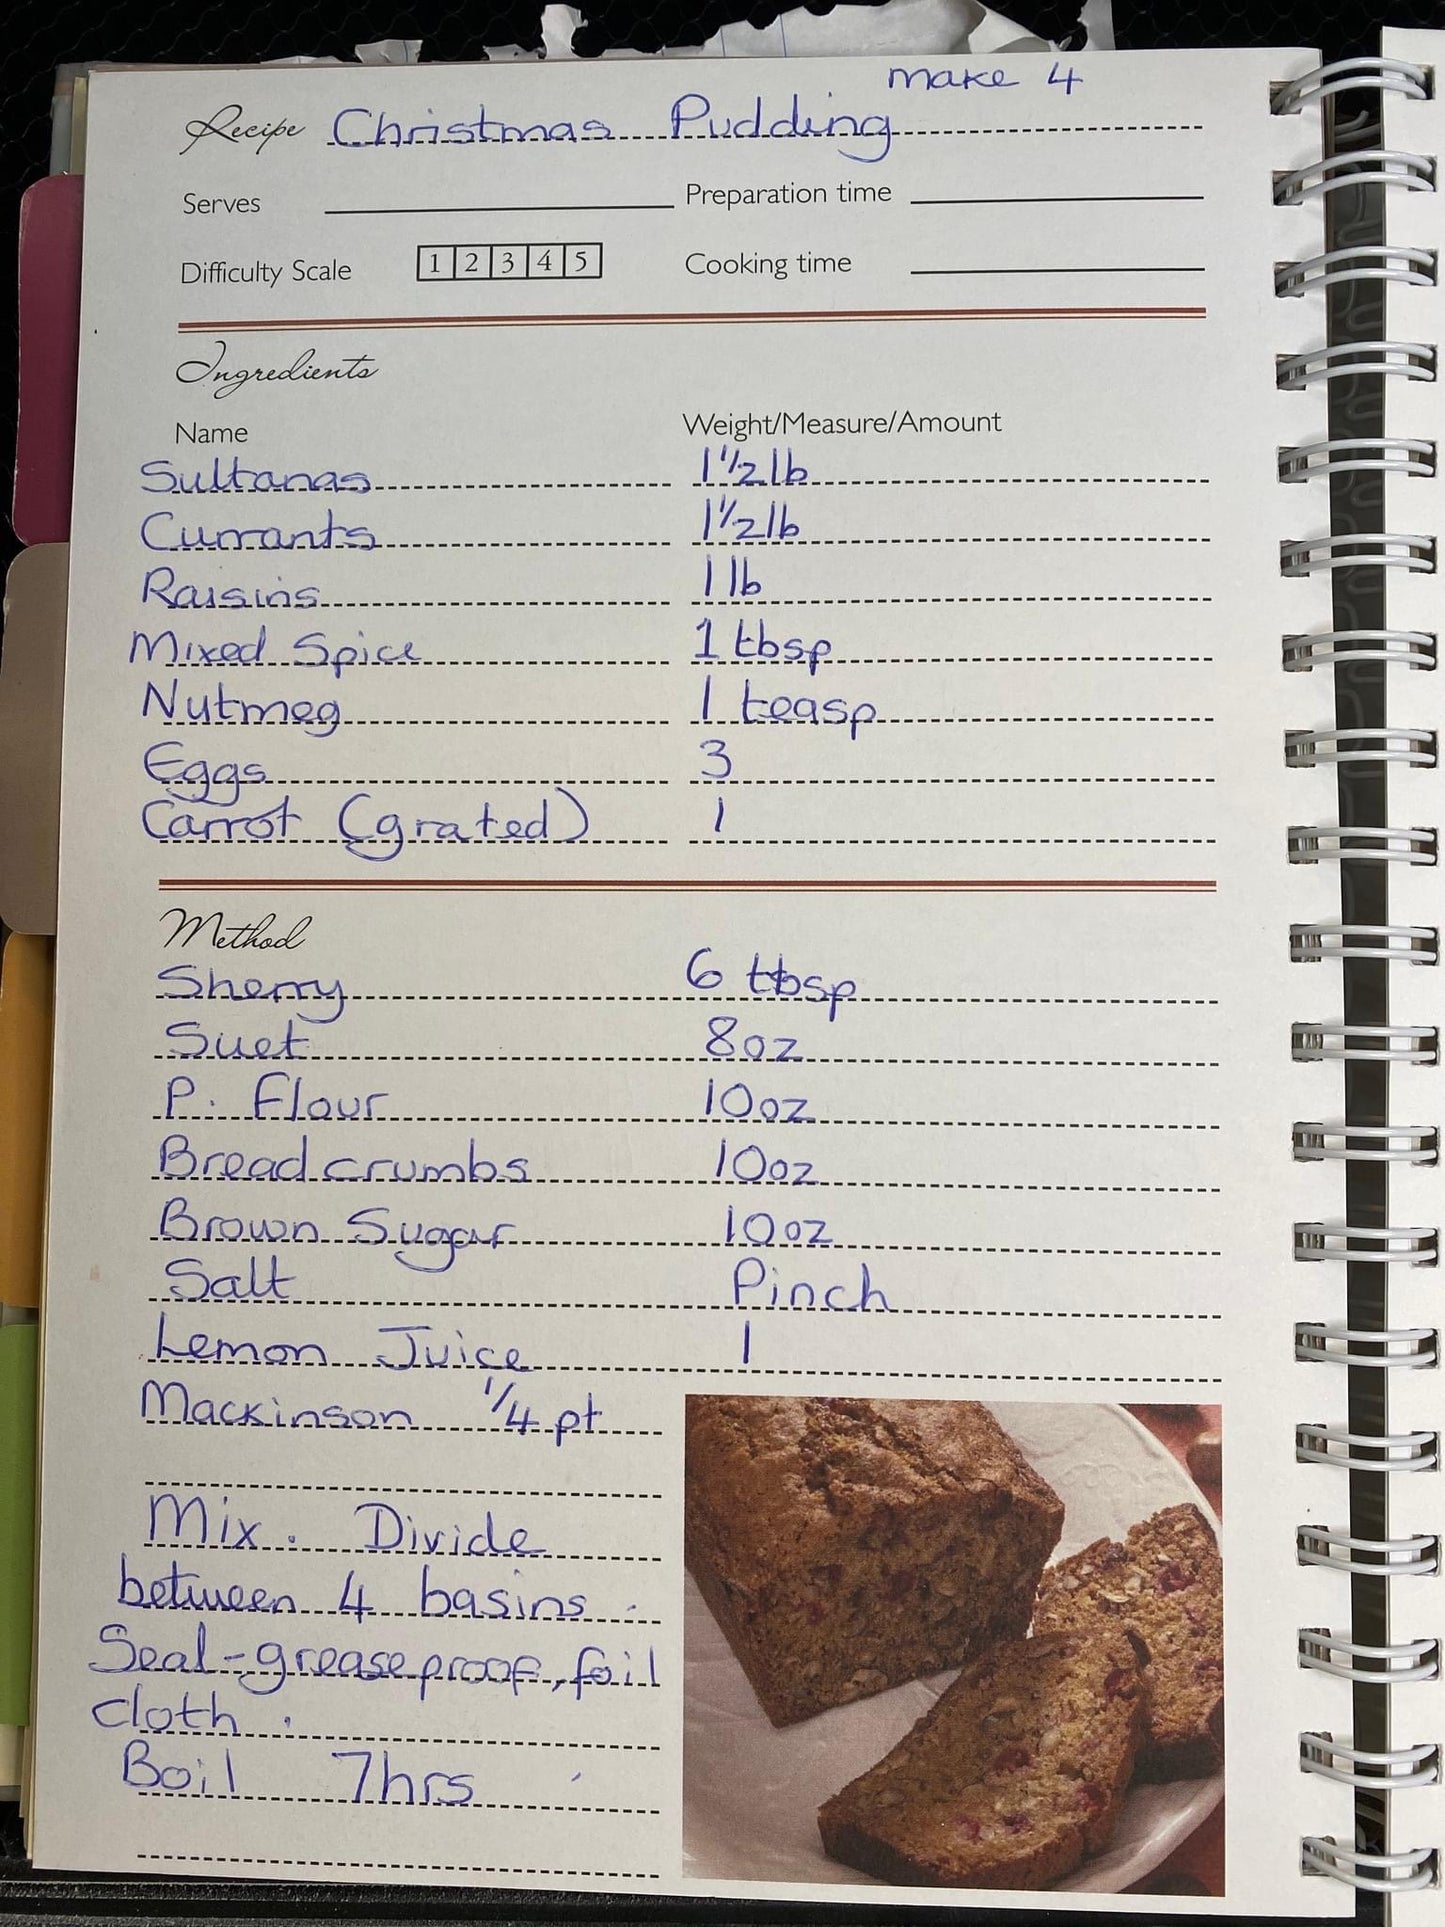 make 4
Recipe Christmas Pudding
Serves Preparation time
Difficulty Scale 1 2 3 4 5 Cooking time
Ingredients
Name Weight/Measure/Amount
Sultanas 1 1/2 lb
Currants 1 1/2 lb
Raisins 1 lb
Mixed Spice 1 tbsp
Nutmeg 1 teasp
Eggs 3
Carrot (grated) 1
Method
Sherry 6 tbsp
Suet 8oz
P. Flour 10oz
Breadcrumbs 10oz
Brown Sugar 10oz
Salt Pinch
Lemon Juice 1
Mackinson 1/4 pt
Mix. Divide
between 4 basins.
Seal - greaseproof, foil
cloth.
Boil 7hrs